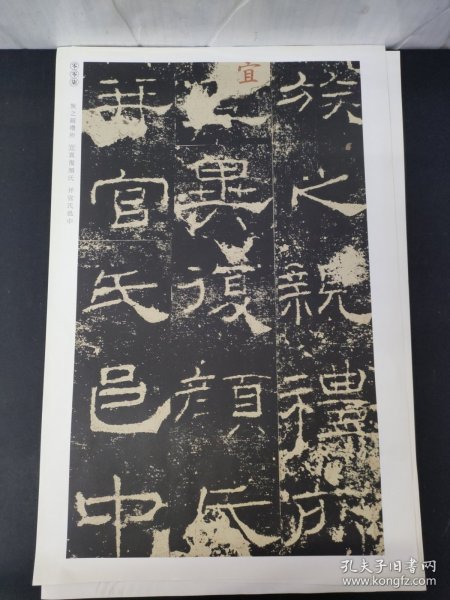 族之親禮所
宜
異復顏氏
并官氏邑中
零零柒
族之親禮所 宜異復顏氏 并官氏邑中
孔夫子旧书网
www.kongfz.com